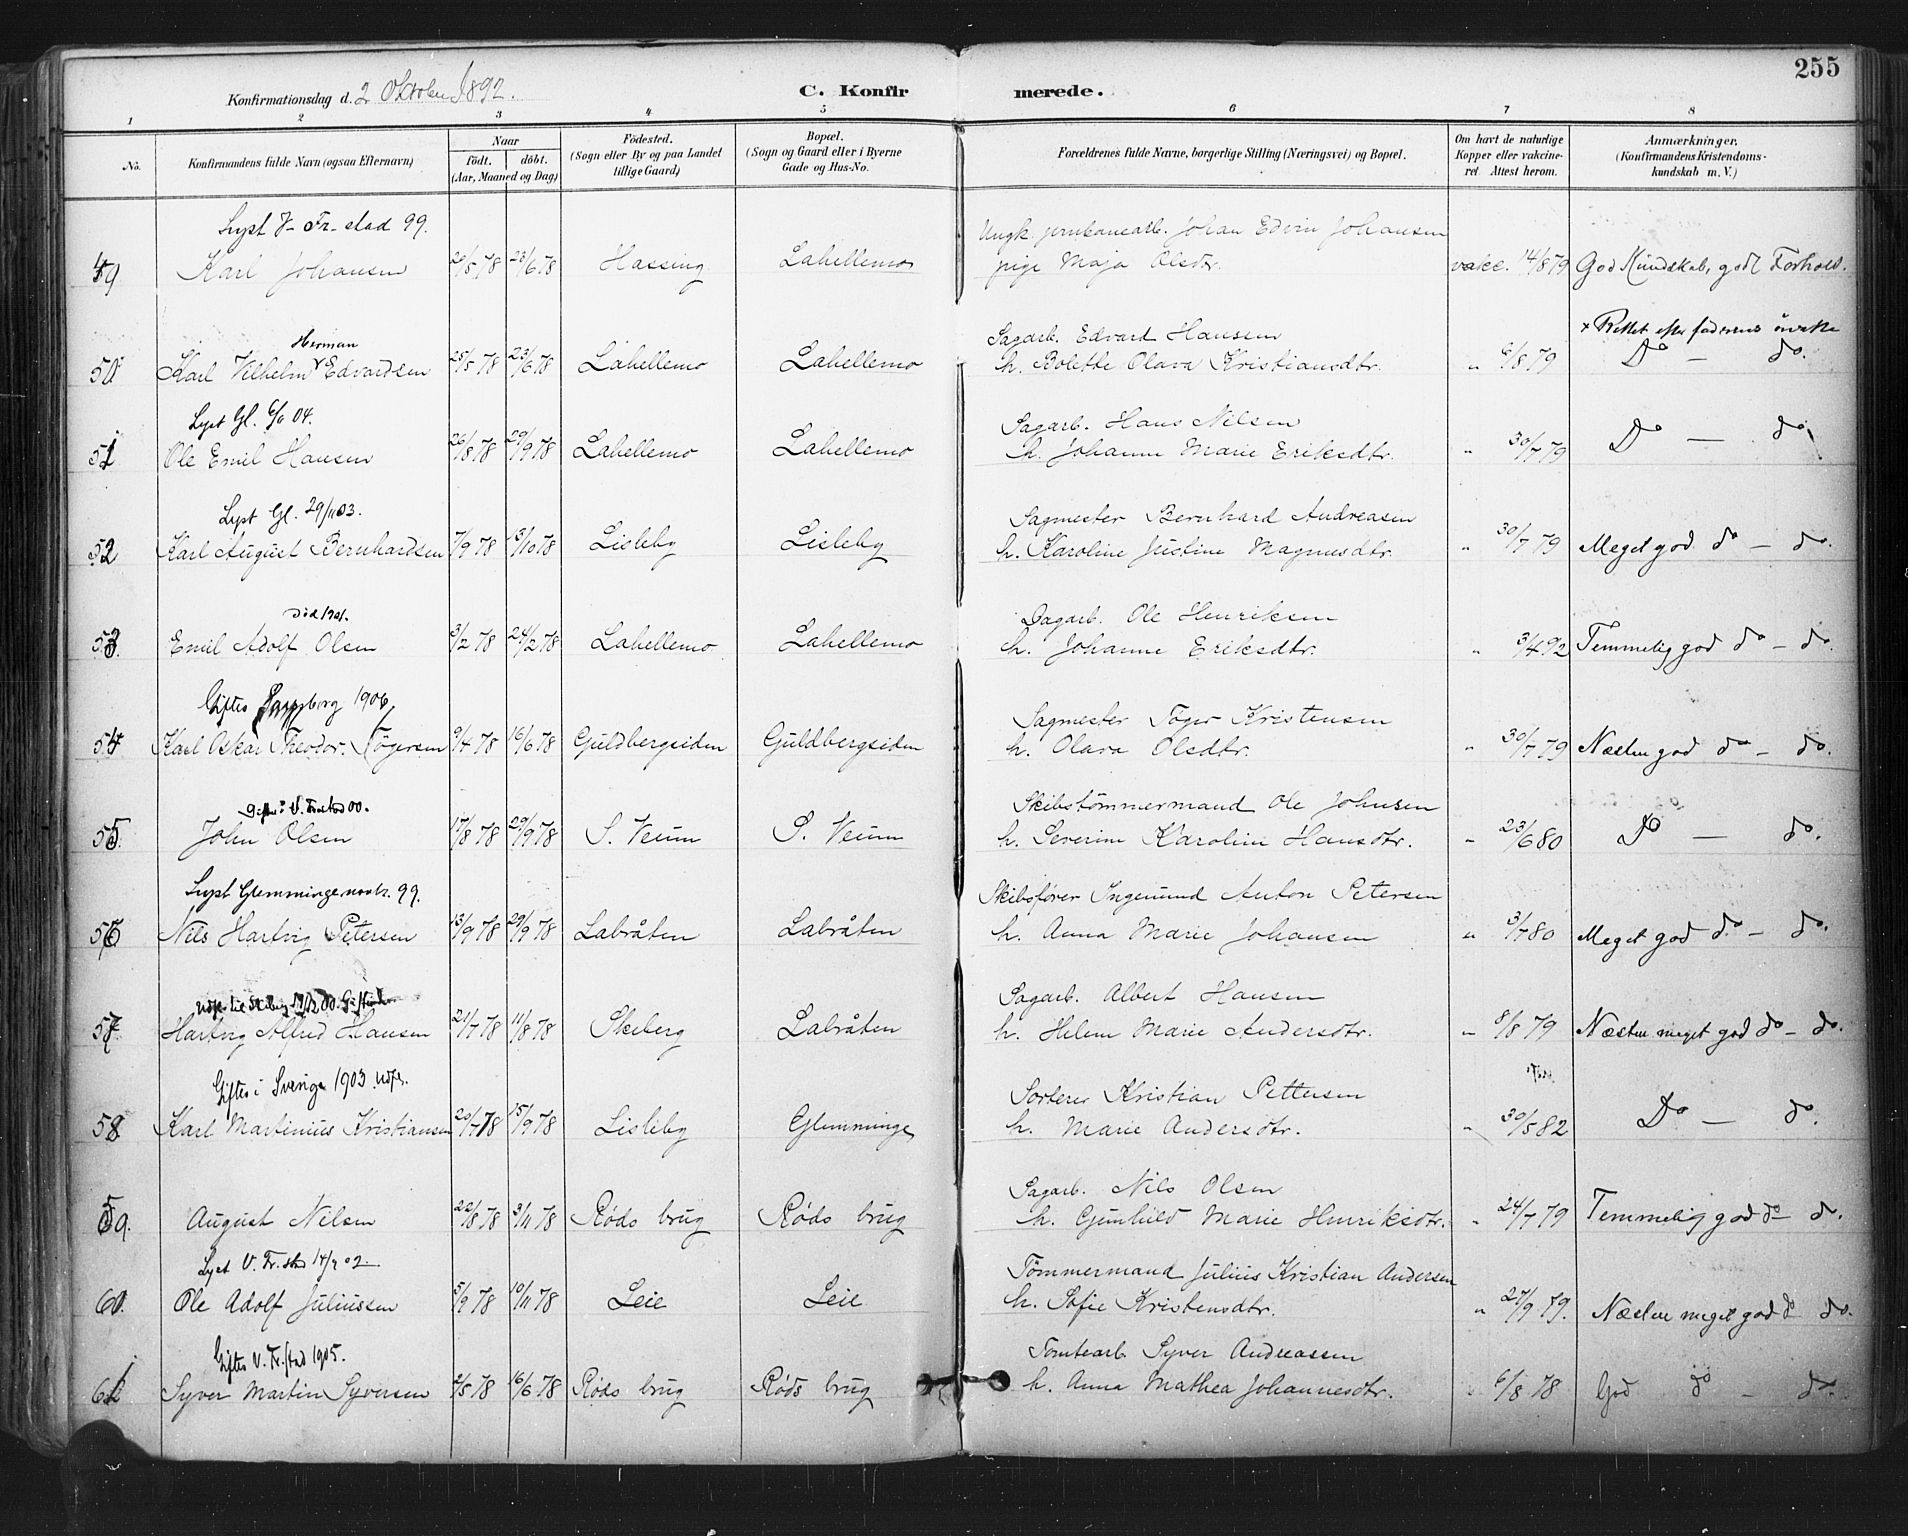 255
Konfirmationsdag d. 2 Oktober 1892. C. Konfirmerede.
1 2 3 4 5 6 7 8
No. Konfirmandens fulde Navn (ogsaa Efternavn) Naar födt. döbt. (Aar, Maaned og Dag) Födested. (Sogn eller By og paa Landet tillige Gaard) Bopæl. (Sogn og Gaard eller i Byerne Gade og Hus-No. Forældrenes fulde Navne, borgerlige Stilling (Næringsvei) og Bopæl. Om havt de naturlige Kopper eller vakcineret. Attest herom. Anmærkninger. (Konfirmandens Kristendomskundskab m. V.)
Lyst V- Fr- stad 99. Ungk. Johan Edvin Johansen
49 Karl Johansen 26/5 78 23/6 78 Hassing Lahellemo pige Maja Olsdtr. vakc. 14/8 79 God Kundskab, godt Forhold.
Herman Sagarb. Edvart Hanssen × Rettet efter faderens ønske
50 Karl Vilhelm × Edvardsen 25/5 78 23/6 78 Lahellemo Lahellemo h. Bolette Olava Kristiansdtr. „ 6/8 79 Do — do.
Lyst Gl. 04. Sagarb. Hans Nilsen
51 Ole Emil Hansen 26/8 78 29/9 78 Lahellemo Lahellemo h. Johanne Marie Eriksdtr. „ 30/7 79 Do — do.
Lyst Gl. 29/11 03. Sagmester Bernhard Andreasen
52 Karl August Bernhardsen 7/9 78 13/10 78 Lisleby Lisleby h. Karoline Justine Magnusdtr. „ 30/7 79 Meget god do — do.
Død 1901. Sagarb. Ole Henriksen
53. Emil Adolf Olsen 3/2 78 24/2 78 Lahellemo Lahellemo h. Johanne Eriksdtr. „ 3/4 92 Temmelig god do — do.
Giftes Sarpsborg 1906 Sagmester Töger Kristensen
54 Karl Oskar Theodor. Tögersen 9/4 78 16/6 78 Guldbergsiden Guldbergsiden h. Olava Olsdtr. „ 30/7 79 Næsten god do — do.
Giftes i V. Fr.stad 00. Skibstömmermand Ole Johnsen
55. John Olsen 17/8 78 29/9 78 S. Veum S. Veum h. Severine Karoline Hansdtr. „ 23/6 80 Do — do.
Lyst Glemminge 99. Skibsfører Ingemund Anton Petersen
56 Nils Hartvig Petersen 13/9 78 29/9 78 Labråten Labråten h. Anna Marie Johansen „ 3/7 80 Meget god do — do.
Sagarb. Albert Hansen
57 Hartvig Alfred Hansen 21/7 78 11/8 78 Skeberg Labråten h. Helene Marie Andersdtr. „ 8/8 79 Næsten meget god do — do.
Giftes i Sverige 1903. Sorterer Kristian Pettersen
58 Karl Martinius Kristiansen 20/7 78 15/9 78 Lisleby Glemminge h. Marie Andersdtr. „ 30/5 82 Do — do.
Sagarb. Nils Olsen
59. August Nilsen 22/8 78 3/11 78 Røds brug Røds brug h. Gunhild Marie Henriksdtr. „ 24/7 79 Temmelig god do do.
Lyst V. Fr.stad 14/9 02. Tömmermand Julius Kristian Andersen
60. Ole Adolf Juliussen 5/9 78 10/11 78 Leie Leie h. Sofie Kristensdtr. „ 27/9 79. Næsten meget god do do.
Giftes V. Fr.stad 1905. Tomtearb. Syver Andreassen
61 Syver Martin Syversen 2/5 78 16/6 78 Røds brug Røds brug h. Anna Mathea Johannesdtr. „ 6/8 78 God do — do.